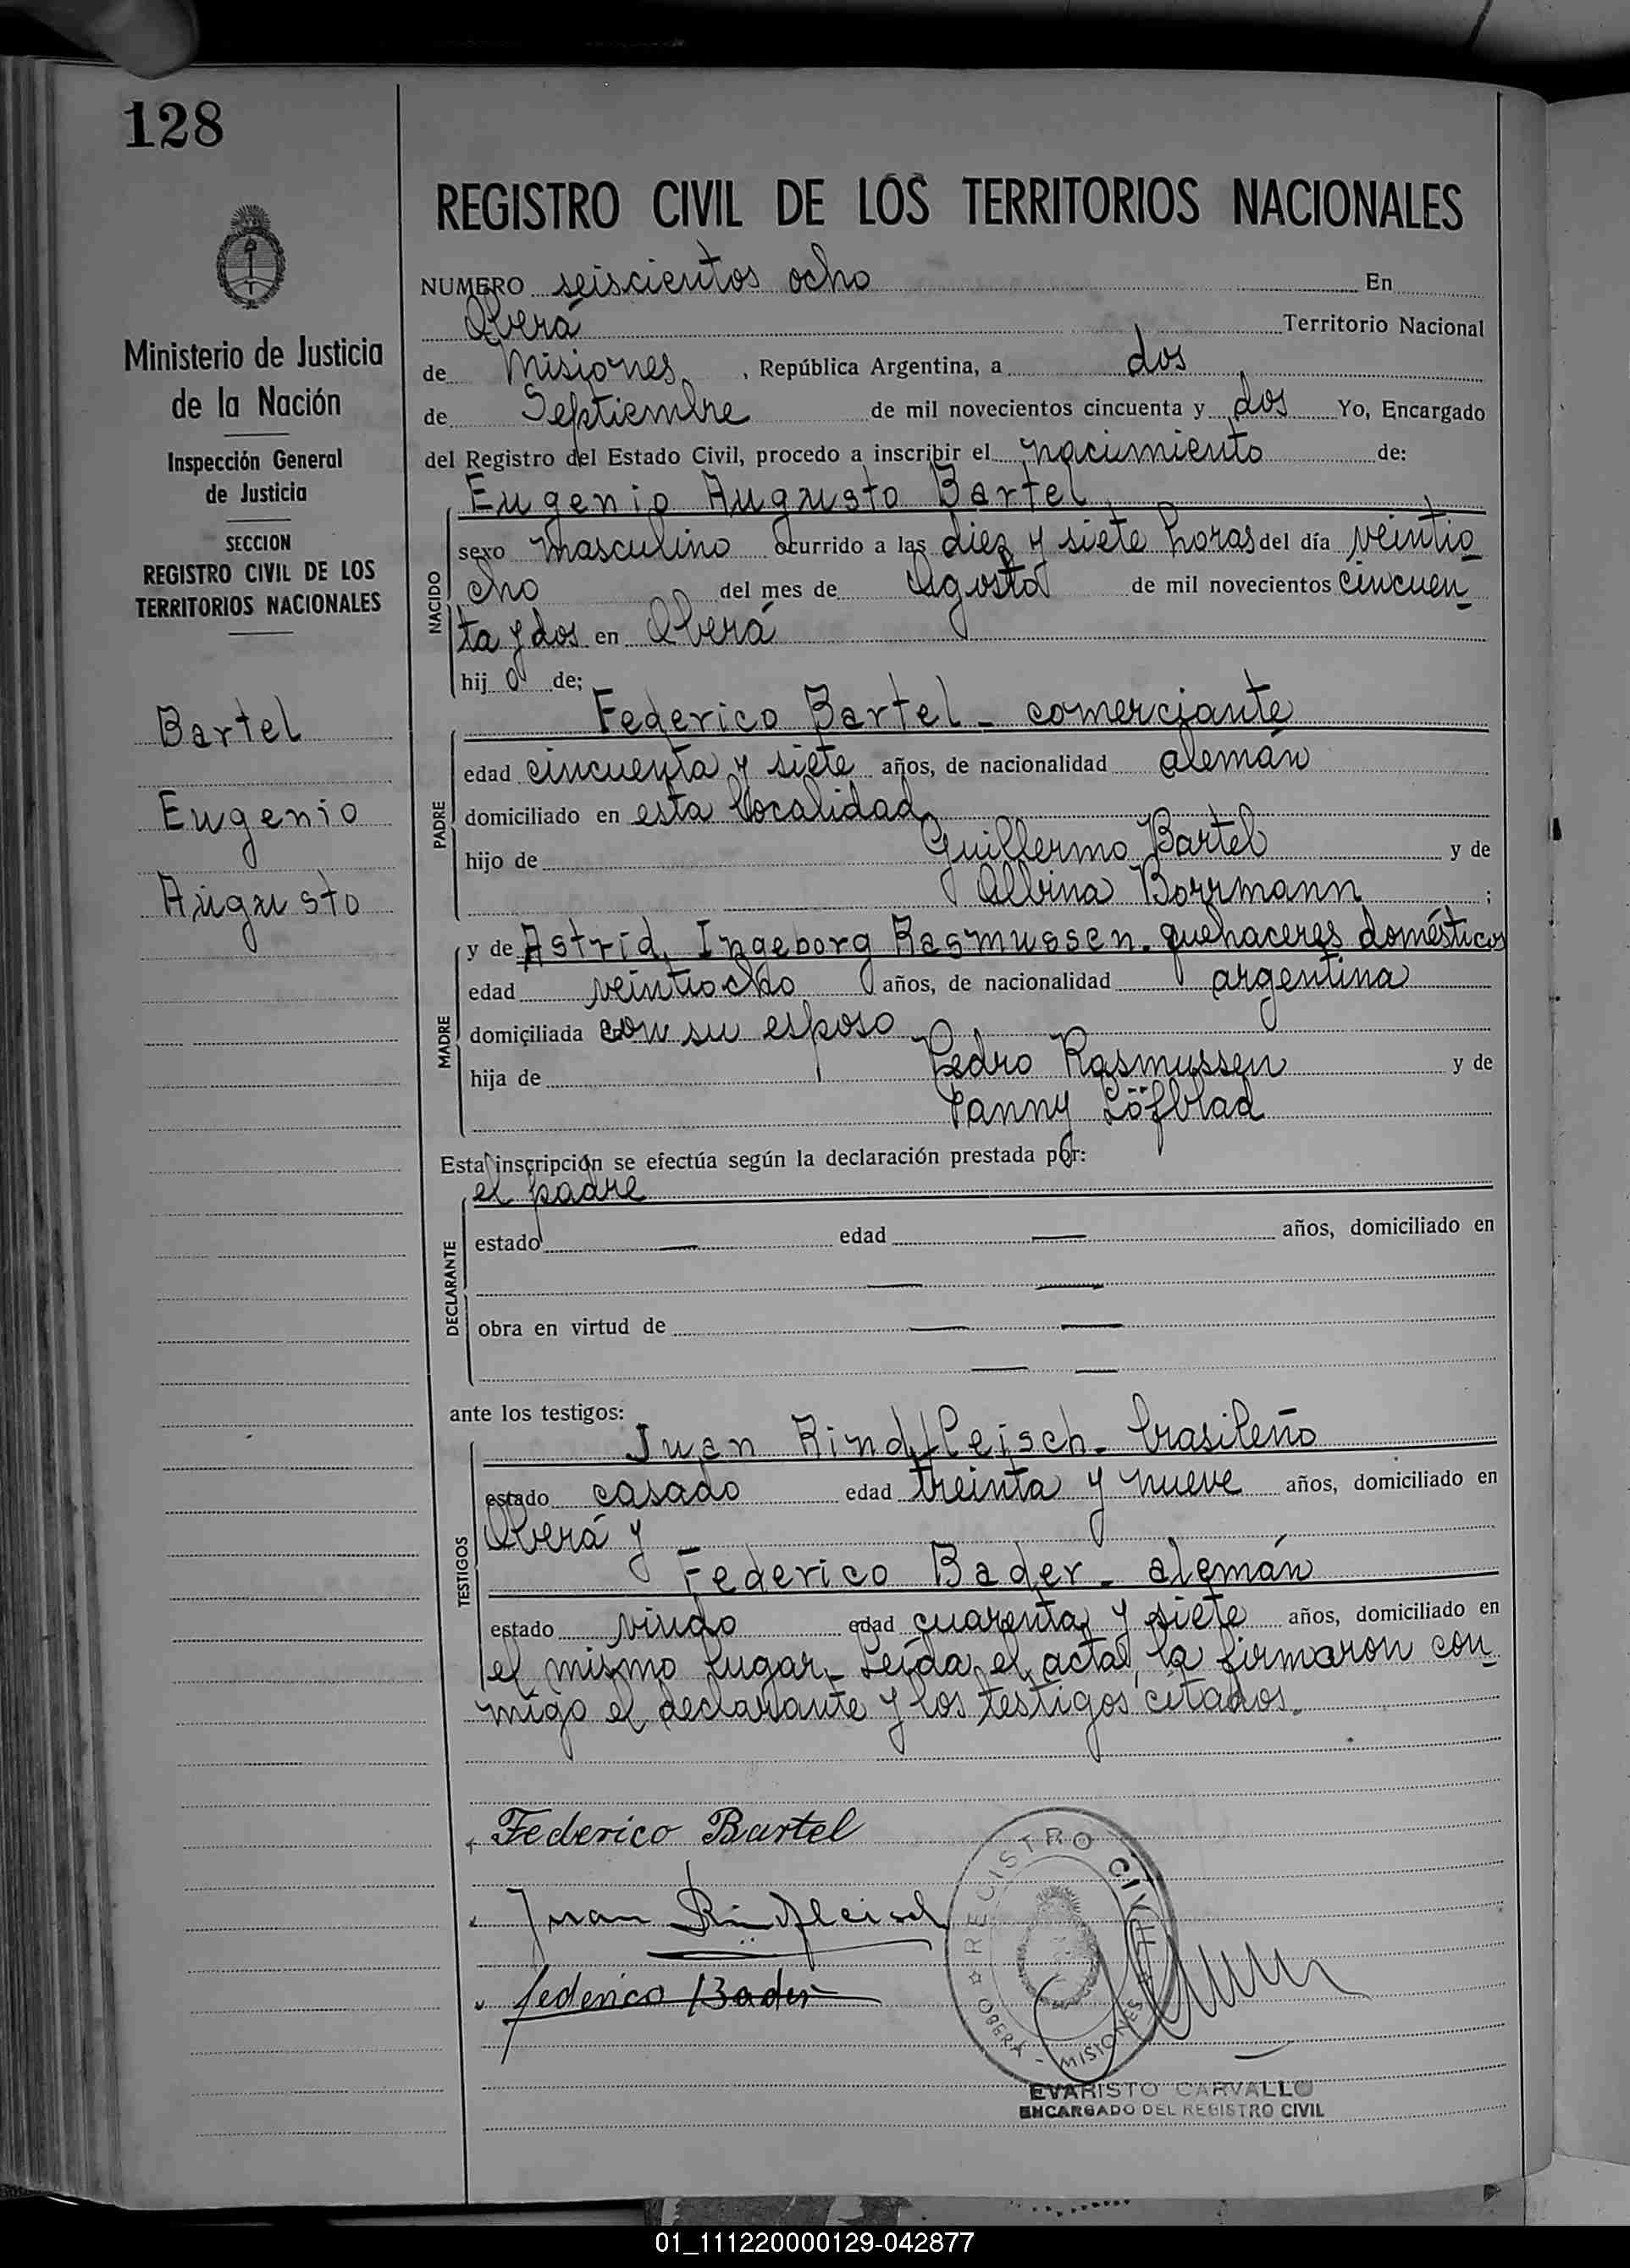 128
REGISTRO CIVIL DE LOS TERRITORIOS NACIONALES
Ministerio de Justicia
de la Nación
Inspección General
de Justicia
SECCION
REGISTRO CIVIL DE LOS
TERRITORIOS NACIONALES
Bartel
Eugenio
Augusto
NUMERO seiscientos ocho En
Oberá Territorio Nacional
de Misiones, República Argentina, a dos
de Septiembre de mil novecientos cincuenta y dos Yo, Encargado
del Registro del Estado Civil, procedo a inscribir el nacimiento de:
NACIDO
Eugenio Augusto Bartel
sexo masculino ocurrido a las diez y siete horas del día veintio
cho del mes de Agosto de mil novecientos cincuen
ta y dos en Oberá
hijo de;
PADRE
Federico Bartel - comerciante
edad cincuenta y siete años, de nacionalidad alemán
domiciliado en esta localidad
hijo de Guillermo Bartel y de
Albina Borrmann ;
MADRE
y de Astrid Ingeborg Rasmussen. quehaceres domésticos
edad veintiocho años, de nacionalidad argentina
domiciliada con su esposo
hija de Pedro Rasmussen y de
Fanny Löfblad
Esta inscripción se efectúa según la declaración prestada por:
DECLARANTE
el padre
estado — edad — años, domiciliado en
— —
obra en virtud de — —
— —
ante los testigos:
TESTIGOS
Juan Rindfleisch - brasileño
estado casado edad treinta y nueve años, domiciliado en
Oberá y
Federico Bader - alemán
estado viudo edad cuarenta y siete años, domiciliado en
el mismo lugar. Leída el acta, la firmaron con
migo el declarante y los testigos citados.
Federico Bartel
Juan Rindfleisch
federico Bader
REGISTRO CIVIL
OBERÁ - MISIONES
EVARISTO CARVALLO
ENCARGADO DEL REGISTRO CIVIL
01_111220000129-042877